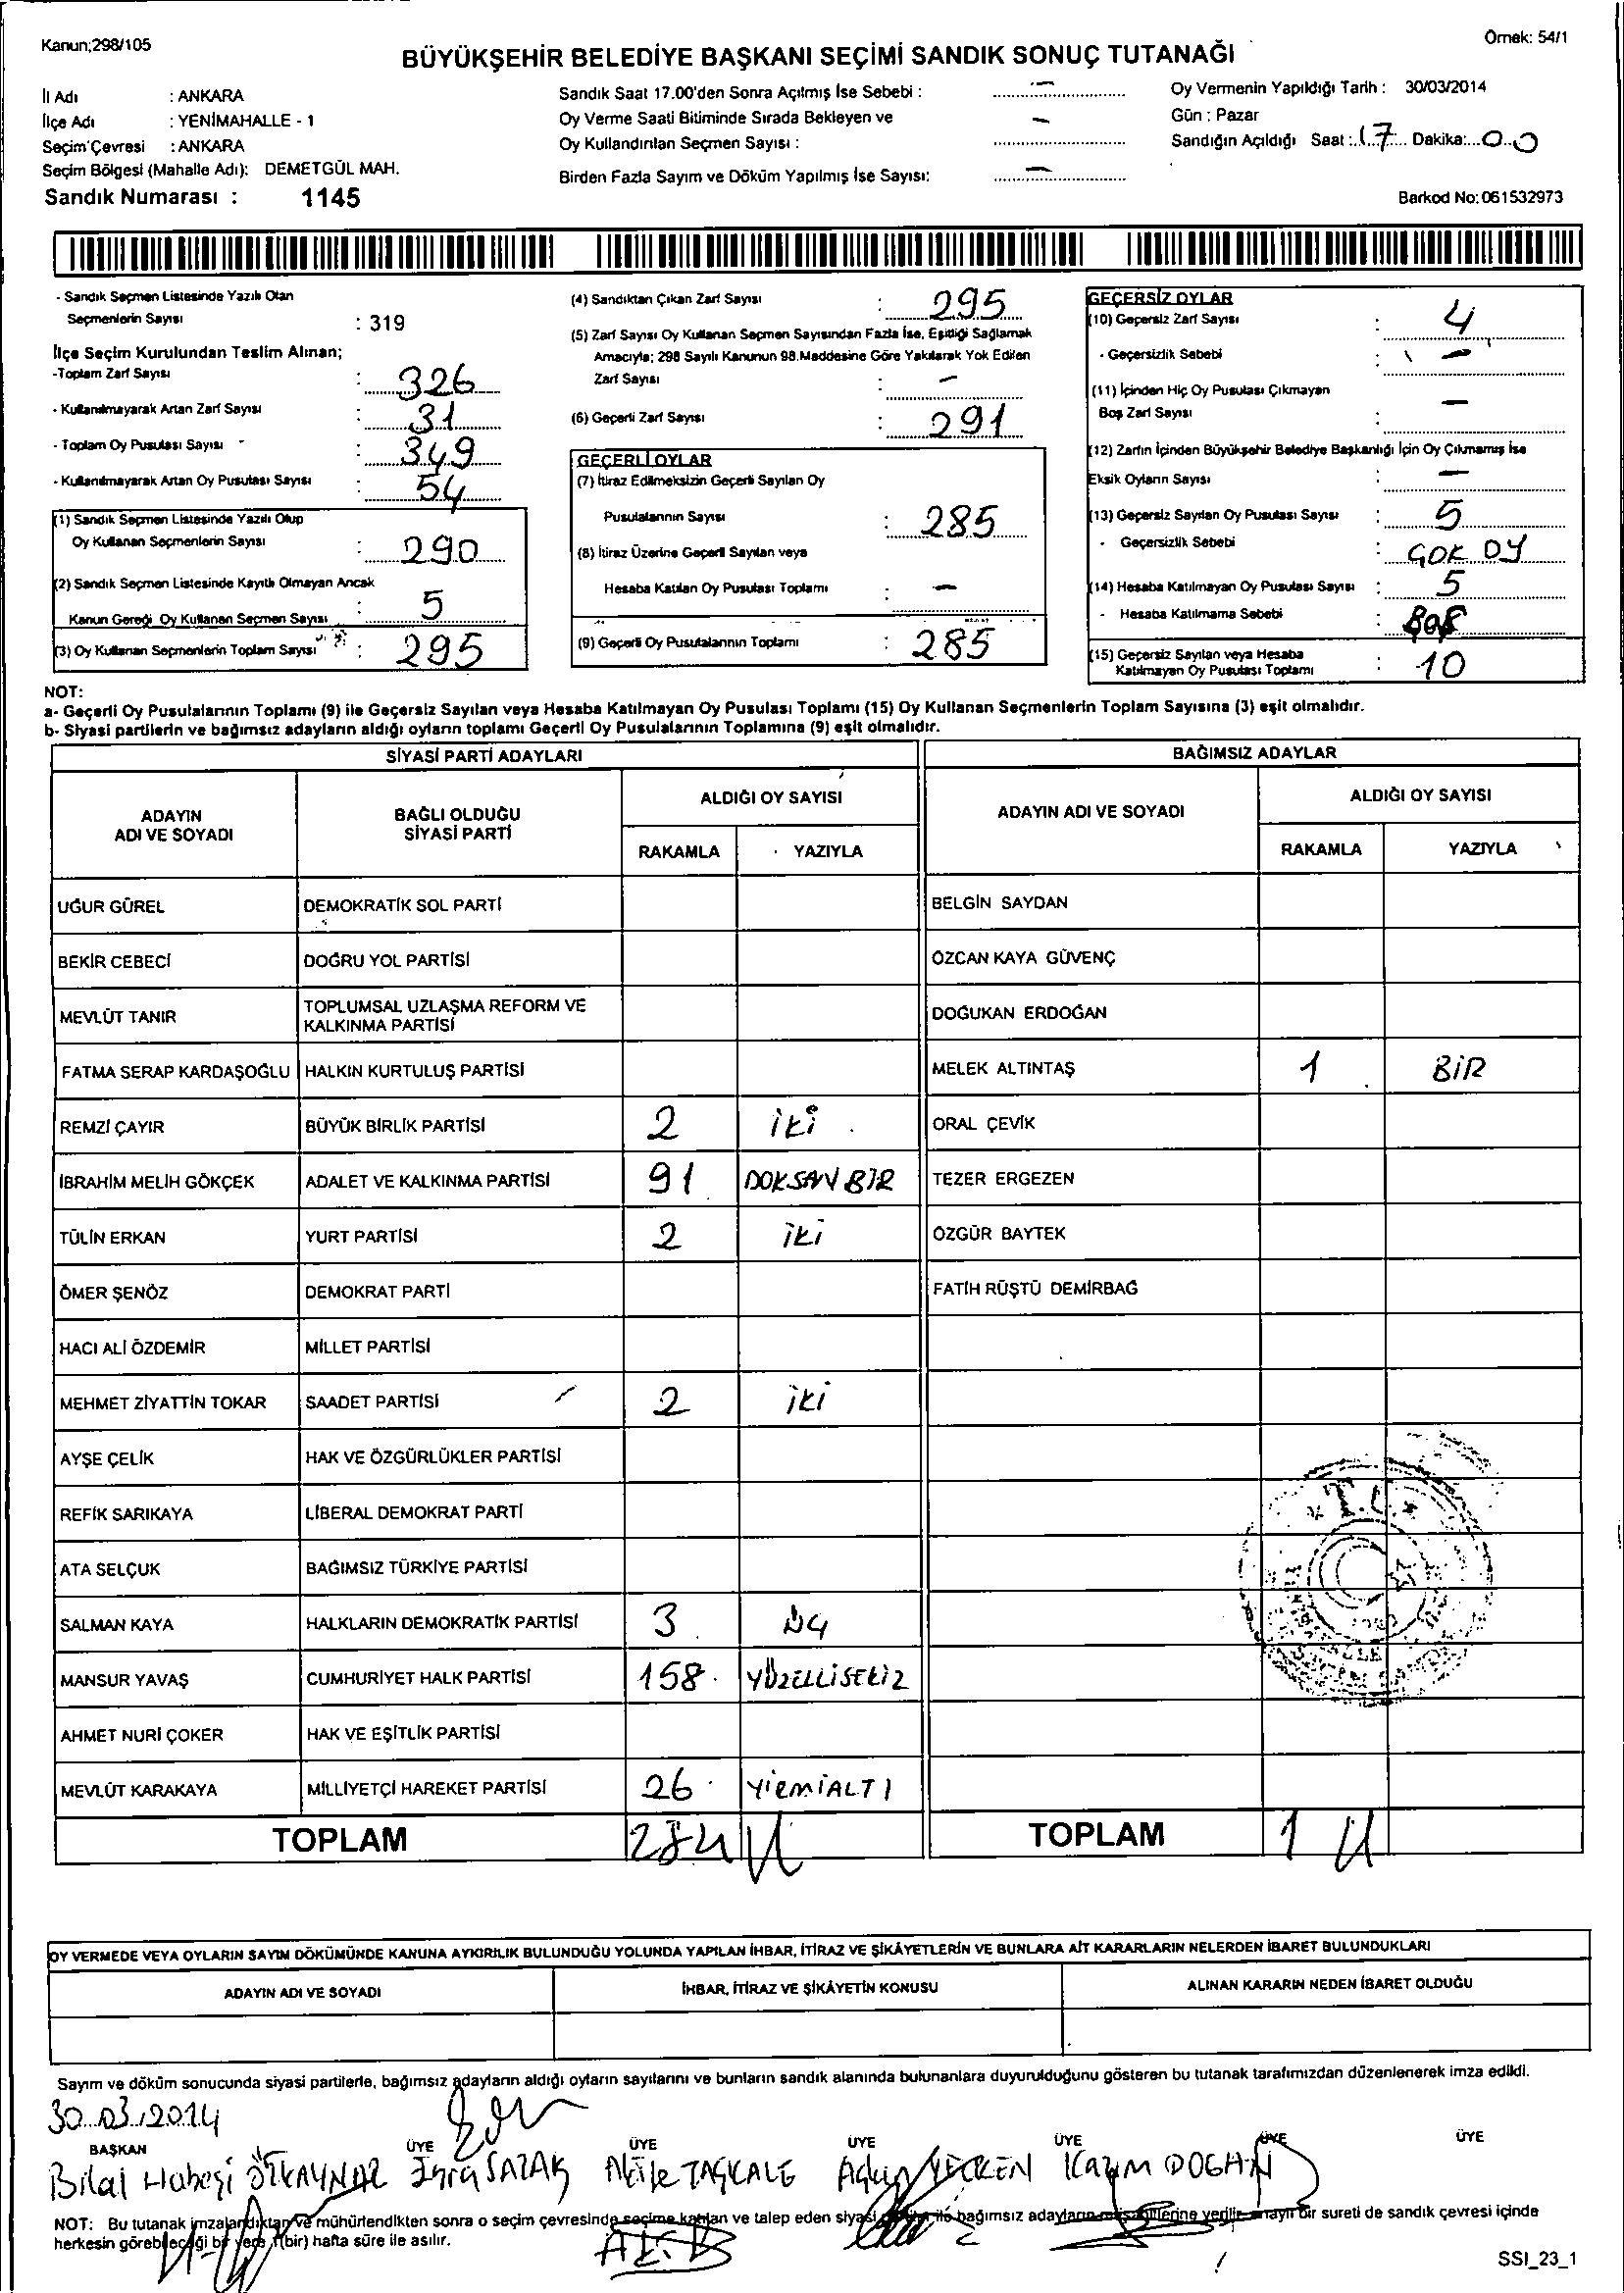 Kanun;298/105
Örnek: 54/1
BÜYÜKŞEHİR BELEDİYE BAŞKANI SEÇİMİ SANDIK SONUÇ TUTANAĞI
İl Adı : ANKARA
İlçe Adı : YENİMAHALLE - 1
Seçim Çevresi : ANKARA
Seçim Bölgesi (Mahalle Adı): DEMETGÜL MAH.
Sandık Numarası : 1145
Sandık Saat 17.00'den Sonra Açılmış İse Sebebi : –
Oy Verme Saati Bitiminde Sırada Bekleyen ve
Oy Kullandırılan Seçmen Sayısı : –
Birden Fazla Sayım ve Döküm Yapılmış İse Sayısı: –
Oy Vermenin Yapıldığı Tarih : 30/03/2014
Gün : Pazar
Sandığın Açıldığı Saat : 17 Dakika: 00
Barkod No: 061532973
- Sandık Seçmen Listesinde Yazılı Olan
Seçmenlerin Sayısı : 319
İlçe Seçim Kurulundan Teslim Alınan;
-Toplam Zarf Sayısı : 326
- Kullanılmayarak Artan Zarf Sayısı : 31
- Toplam Oy Pusulası Sayısı : 349
- Kullanılmayarak Artan Oy Pusulası Sayısı : 54
(1) Sandık Seçmen Listesinde Yazılı Olup
Oy Kullanan Seçmenlerin Sayısı : 290
(2) Sandık Seçmen Listesinde Kayıtlı Olmayan Ancak
Kanun Gereği Oy Kullanan Seçmen Sayısı : 5
(3) Oy Kullanan Seçmenlerin Toplam Sayısı : 295
(4) Sandıktan Çıkan Zarf Sayısı : 295
(5) Zarf Sayısı Oy Kullanan Seçmen Sayısından Fazla İse, Eşitliği Sağlamak
Amacıyla; 298 Sayılı Kanunun 98.Maddesine Göre Yakılarak Yok Edilen
Zarf Sayısı : –
(6) Geçerli Zarf Sayısı : 291
GEÇERLİ OYLAR
(7) İtiraz Edilmeksizin Geçerli Sayılan Oy
Pusulalarının Sayısı : 285
(8) İtiraz Üzerine Geçerli Sayılan veya
Hesaba Katılan Oy Pusulası Toplamı : –
(9) Geçerli Oy Pusulalarının Toplamı : 285
GEÇERSİZ OYLAR
(10) Geçersiz Zarf Sayısı : 4
- Geçersizlik Sebebi : –
(11) İçinden Hiç Oy Pusulası Çıkmayan
Boş Zarf Sayısı : –
(12) Zarfın İçinden Büyükşehir Belediye Başkanlığı İçin Oy Çıkmamış İse
Eksik Oyların Sayısı : –
(13) Geçersiz Sayılan Oy Pusulası Sayısı : 5
- Geçersizlik Sebebi : ÇOK OY
(14) Hesaba Katılmayan Oy Pusulası Sayısı : 5
- Hesaba Katılmama Sebebi : BOŞ
(15) Geçersiz Sayılan veya Hesaba
Katılmayan Oy Pusulası Toplamı : 10
NOT:
a- Geçerli Oy Pusulalarının Toplamı (9) ile Geçersiz Sayılan veya Hesaba Katılmayan Oy Pusulası Toplamı (15) Oy Kullanan Seçmenlerin Toplam Sayısına (3) eşit olmalıdır.
b- Siyasi partilerin ve bağımsız adayların aldığı oyların toplamı Geçerli Oy Pusulalarının Toplamına (9) eşit olmalıdır.
SİYASİ PARTİ ADAYLARI
ADAYIN ADI VE SOYADI BAĞLI OLDUĞU SİYASİ PARTİ ALDIĞI OY SAYISI
RAKAMLA YAZIYLA
UĞUR GÜREL DEMOKRATİK SOL PARTİ
BEKİR CEBECİ DOĞRU YOL PARTİSİ
MEVLÜT TANIR TOPLUMSAL UZLAŞMA REFORM VE KALKINMA PARTİSİ
FATMA SERAP KARDAŞOĞLU HALKIN KURTULUŞ PARTİSİ
REMZİ ÇAYIR BÜYÜK BİRLİK PARTİSİ 2 iki
İBRAHİM MELİH GÖKÇEK ADALET VE KALKINMA PARTİSİ 91 DOKSAN BİR
TÜLİN ERKAN YURT PARTİSİ 2 iki
ÖMER ŞENÖZ DEMOKRAT PARTİ
HACI ALİ ÖZDEMİR MİLLET PARTİSİ
MEHMET ZİYATTİN TOKAR SAADET PARTİSİ 2 iki
AYŞE ÇELİK HAK VE ÖZGÜRLÜKLER PARTİSİ
REFİK SARIKAYA LİBERAL DEMOKRAT PARTİ
ATA SELÇUK BAĞIMSIZ TÜRKİYE PARTİSİ
SALMAN KAYA HALKLARIN DEMOKRATİK PARTİSİ 3 ÜÇ
MANSUR YAVAŞ CUMHURİYET HALK PARTİSİ 158 YÜZELLİSEKİZ
AHMET NURİ ÇOKER HAK VE EŞİTLİK PARTİSİ
MEVLÜT KARAKAYA MİLLİYETÇİ HAREKET PARTİSİ 26 YİRMİALTI
TOPLAM 284
BAĞIMSIZ ADAYLAR
ADAYIN ADI VE SOYADI ALDIĞI OY SAYISI
RAKAMLA YAZIYLA
BELGİN SAYDAN
ÖZCAN KAYA GÜVENÇ
DOĞUKAN ERDOĞAN
MELEK ALTINTAŞ 1 BİR
ORAL ÇEVİK
TEZER ERGEZEN
ÖZGÜR BAYTEK
FATİH RÜŞTÜ DEMİRBAĞ
T.C.
TOPLAM 1
OY VERMEDE VEYA OYLARIN SAYIM DÖKÜMÜNDE KANUNA AYKIRILIK BULUNDUĞU YOLUNDA YAPILAN İHBAR, İTİRAZ VE ŞİKÂYETLERİN VE BUNLARA AİT KARARLARIN NELERDEN İBARET BULUNDUKLARI
ADAYIN ADI VE SOYADI İHBAR, İTİRAZ VE ŞİKÂYETİN KONUSU ALINAN KARARIN NEDEN İBARET OLDUĞU
Sayım ve döküm sonucunda siyasi partilerle, bağımsız adayların aldığı oyların sayılarını ve bunların sandık alanında bulunanlara duyurulduğunu gösteren bu tutanak tarafımızdan düzenlenerek imza edildi.
30.03.2014
BAŞKAN ÜYE ÜYE ÜYE ÜYE ÜYE ÜYE
Bilal Habeşi ÖZKAYNAR Esra SAZAK TAŞKALE Kazım DOĞAN
NOT: Bu tutanak imzalandıktan ve mühürlendikten sonra o seçim çevresinde seçime katılan ve talep eden siyasi ile bağımsız adayların müşahitlerine verilir bir sureti de sandık çevresi içinde
herkesin görebileceği bir yere 1(bir) hafta süre ile asılır.
SSI_23_1